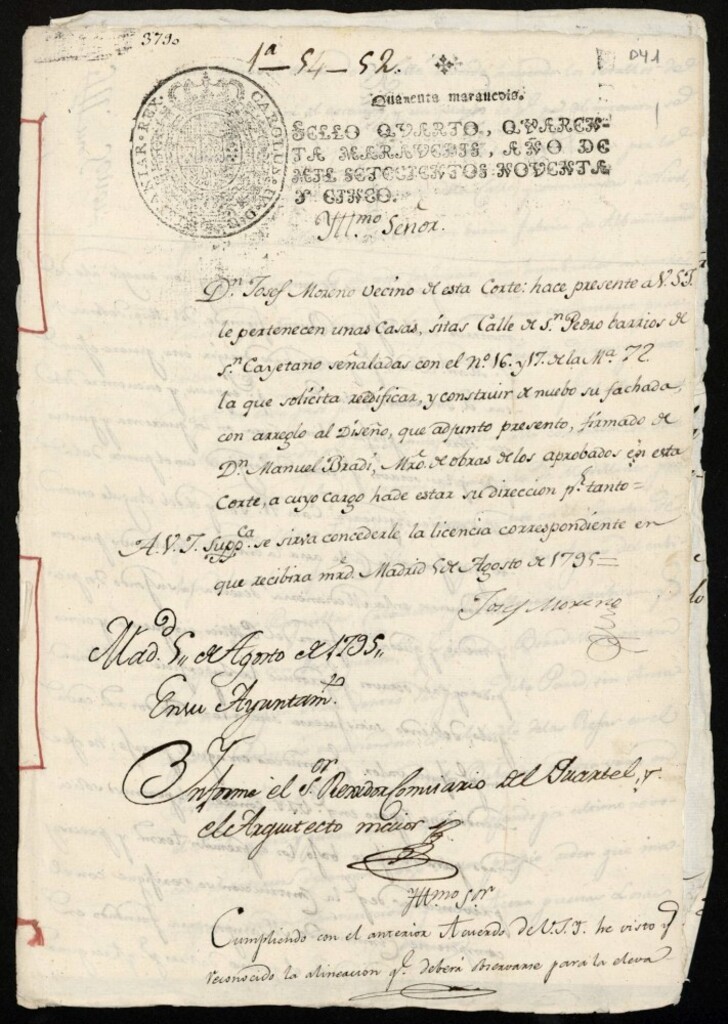 379.
1ª-54-52.
D41
Quarenta marauedis.
CAROLUS IV D G HISPANIAR REX
SELLO QVARTO, QVAREN-
TA MARAVEDIS, AÑO DE
MIL SETECIENTOS NOVENTA
Y CINCO.
Yllmo Señor.
Dn. Josef Moreno vecino de esta Corte: hace presente a V.S.I.
le pertenecen unas Casas, sitas Calle de Sn. Pedro barrios de
Sn. Cayetano señaladas con el nº.16. y 17. de la Ma. 72
la que solicita redificar, y construir de nuebo su fachada,
con arreglo al Diseño, que adjunto presento, firmado de
Dn. Manuel Bradi, Mro. de obras de los aprobados en esta
Corte, a cuyo cargo hade estar su direccion pr. tanto=
A V.I. Suppca. se sirva concederle la licencia correspondiente en
que recibira mrd. Madrid 5 de Agosto de 1795=
Josef Moreno
Mad.d 5,, de Agosto de 1795,,
En su Ayuntam.to
Informe el S.or Rexidor Comisario del Quartel, y
el Arquitecto maior
Yllmo Sor
Cumpliendo con el anterior Acuerdo de V.S.I. he visto y
reconocido la alineacion q.e deberá observarse para la eleva